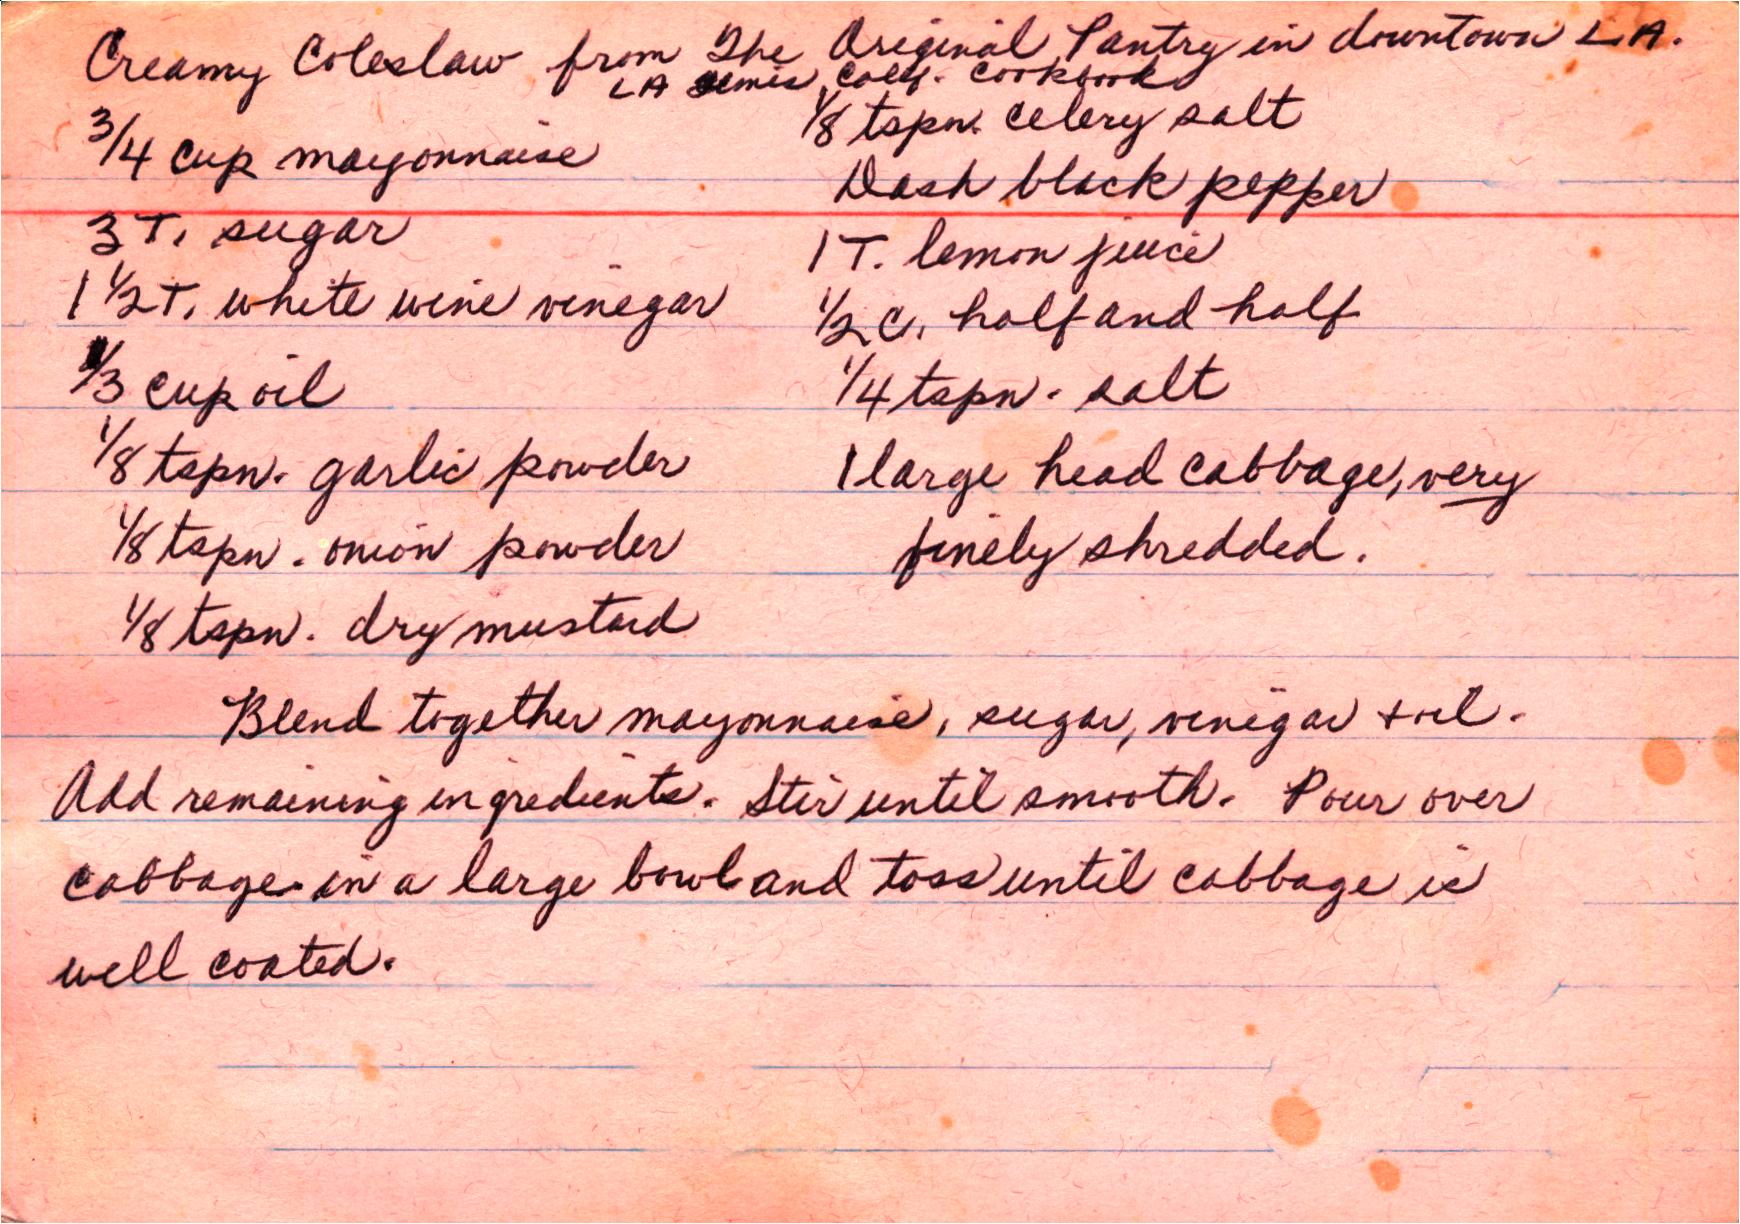 Creamy Coleslaw from The Original Pantry in downtown L.A.
LA Times Calif. Cookbook
3/4 cup mayonnaise
3 T. sugar
1 1/2 T. white wine vinegar
1/3 cup oil
1/8 tspn. garlic powder
1/8 tspn. onion powder
1/8 tspn. dry mustard
1/8 tspn. celery salt
Dash black pepper
1 T. lemon juice
1/2 C. half and half
1/4 tspn. salt
1 large head cabbage, very
finely shredded.
Blend together mayonnaise, sugar, vinegar + oil.
Add remaining ingredients. Stir until smooth. Pour over
cabbage in a large bowl and toss until cabbage is
well coated.